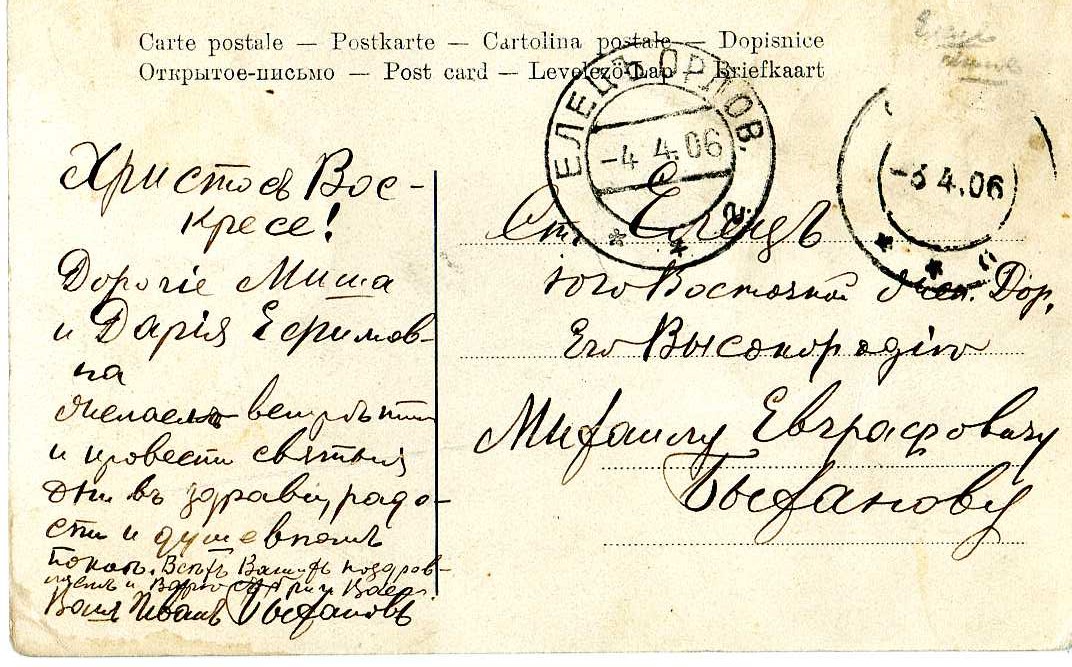 Carte postale — Postkarte — Cartolina postale — Dopisnice
Открытое-письмо — Post card — Levelező-Lap — Briefkaart
ЕЛЕЦЪ ОРЛОВ.
-4 4.06
2
-3 4.06
Христосъ Вос-
кресе!
Дорогіе Миша
и Дарія Ефимов-
на
Желаемъ встрѣтить
и провести святыя
дни въ здравіи, радо-
сти и душевномъ
покоѣ. Всѣхъ Вашихъ поздрав-
ляемъ и
Вашъ Иванъ Быхановъ
Ст. Елецъ
Юго Восточной Жел. Дор.
Его Высокородію
Михаилу Евграфовичу
Быханову